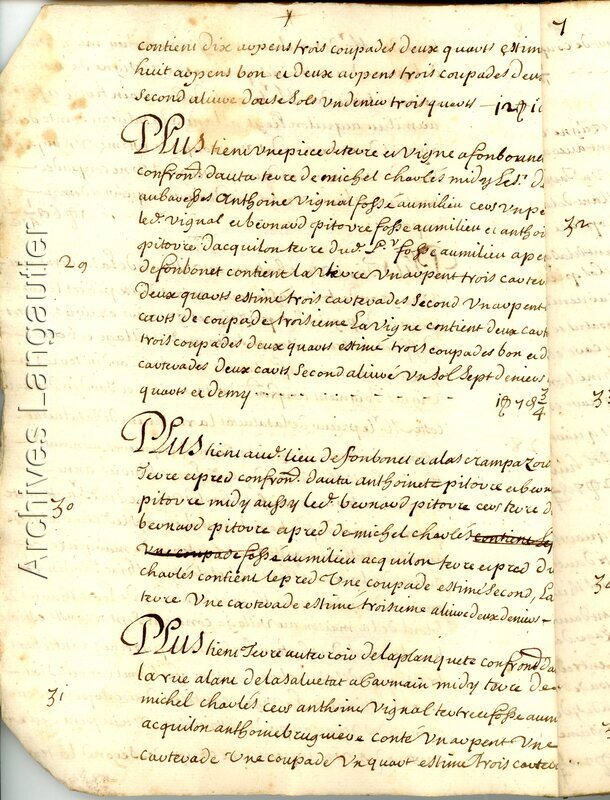 7
contient dix arpens trois coupades deux quarts estim
huit arpens bon et deux arpens trois coupades deux
Second alivre douse sols un denier trois quarts
Plus tient une piece de terre et vigne a fonbonne
confron. dauta terre de michel charles midy Les. de
Anthoine vignal fossé au milieu cers un pe
led. vignal et bernard pitorre fosse au milieu et anthoi
pitorre daquilon terre dud. Sr. fossé au milieu a pe
29
de fonbonet contient la terre un arpent trois carter
deux quarts estimé trois carterades second un arpent
carts de coupade troisieme La vigne contient deux cart
trois coupades deux quarts estimé trois coupades bon et d
carterades deux carts second alivré un sol sept deniers
quarts et demy 1 ꝑ 7 ꝺ 3/4
Plus tient aud. lieu de fonbonet et a las crampazou
Terre et pred confron. dauta anthoinete pitorre et bern
pitorre midy aussy led. bernard pitorre cers terre d
30
bernard pitorre et pred de michel charlés contient
une coupade fossé au milieu acquilon terre et pred du
charles contient le pred une coupade estimé second, La
terre une carterade estimé troisieme alivre deux deniers
Plus tient Terre au terroir de la planquete confrond da
la rue alant de la salvetat a caraman midy terre de
31
michel charlés cers anthoine vignal tertre et fosse au m
acquilon anthoine bruguiere conte un arpent une
carterade une coupade un quart estimé trois carter
32
Archives Langautier